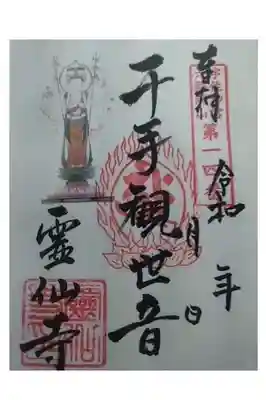 奉拝
第一
令和 年 月 日
千手観世音
霊仙寺